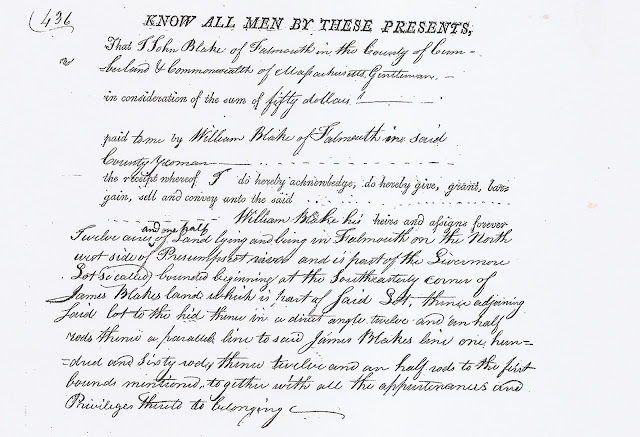 (436
KNOW ALL MEN BY THESE PRESENTS,
That I John Blake of Falmouth in the County of Cum=
berland & Commonwealth of Massachusetts, Gentleman, —
in consideration of the sum of fifty dollars
paid to me by William Blake of Falmouth in said
County Yeoman
the receipt whereof I do hereby acknowledge, do hereby give, grant, bar-
gain, sell and convey unto the said
William Blake his heirs and assigns forever
and one half
Twelve acres of Land lying and being in Falmouth on the North
west side of Presumpscot river and is part of the Livermore
Lot (so called) bounded beginning at the Southeasterly corner of
James Blakes land which is part of said Lot, thence adjoining
said lot to the thence in a direct angle twelve and an half
rods thence a parallel line to said James Blakes line one hun=
=dred and sixty rods thence twelve and an half rods to the first
bounds mentioned, together with all the appurtenances and
Privileges thereto belonging